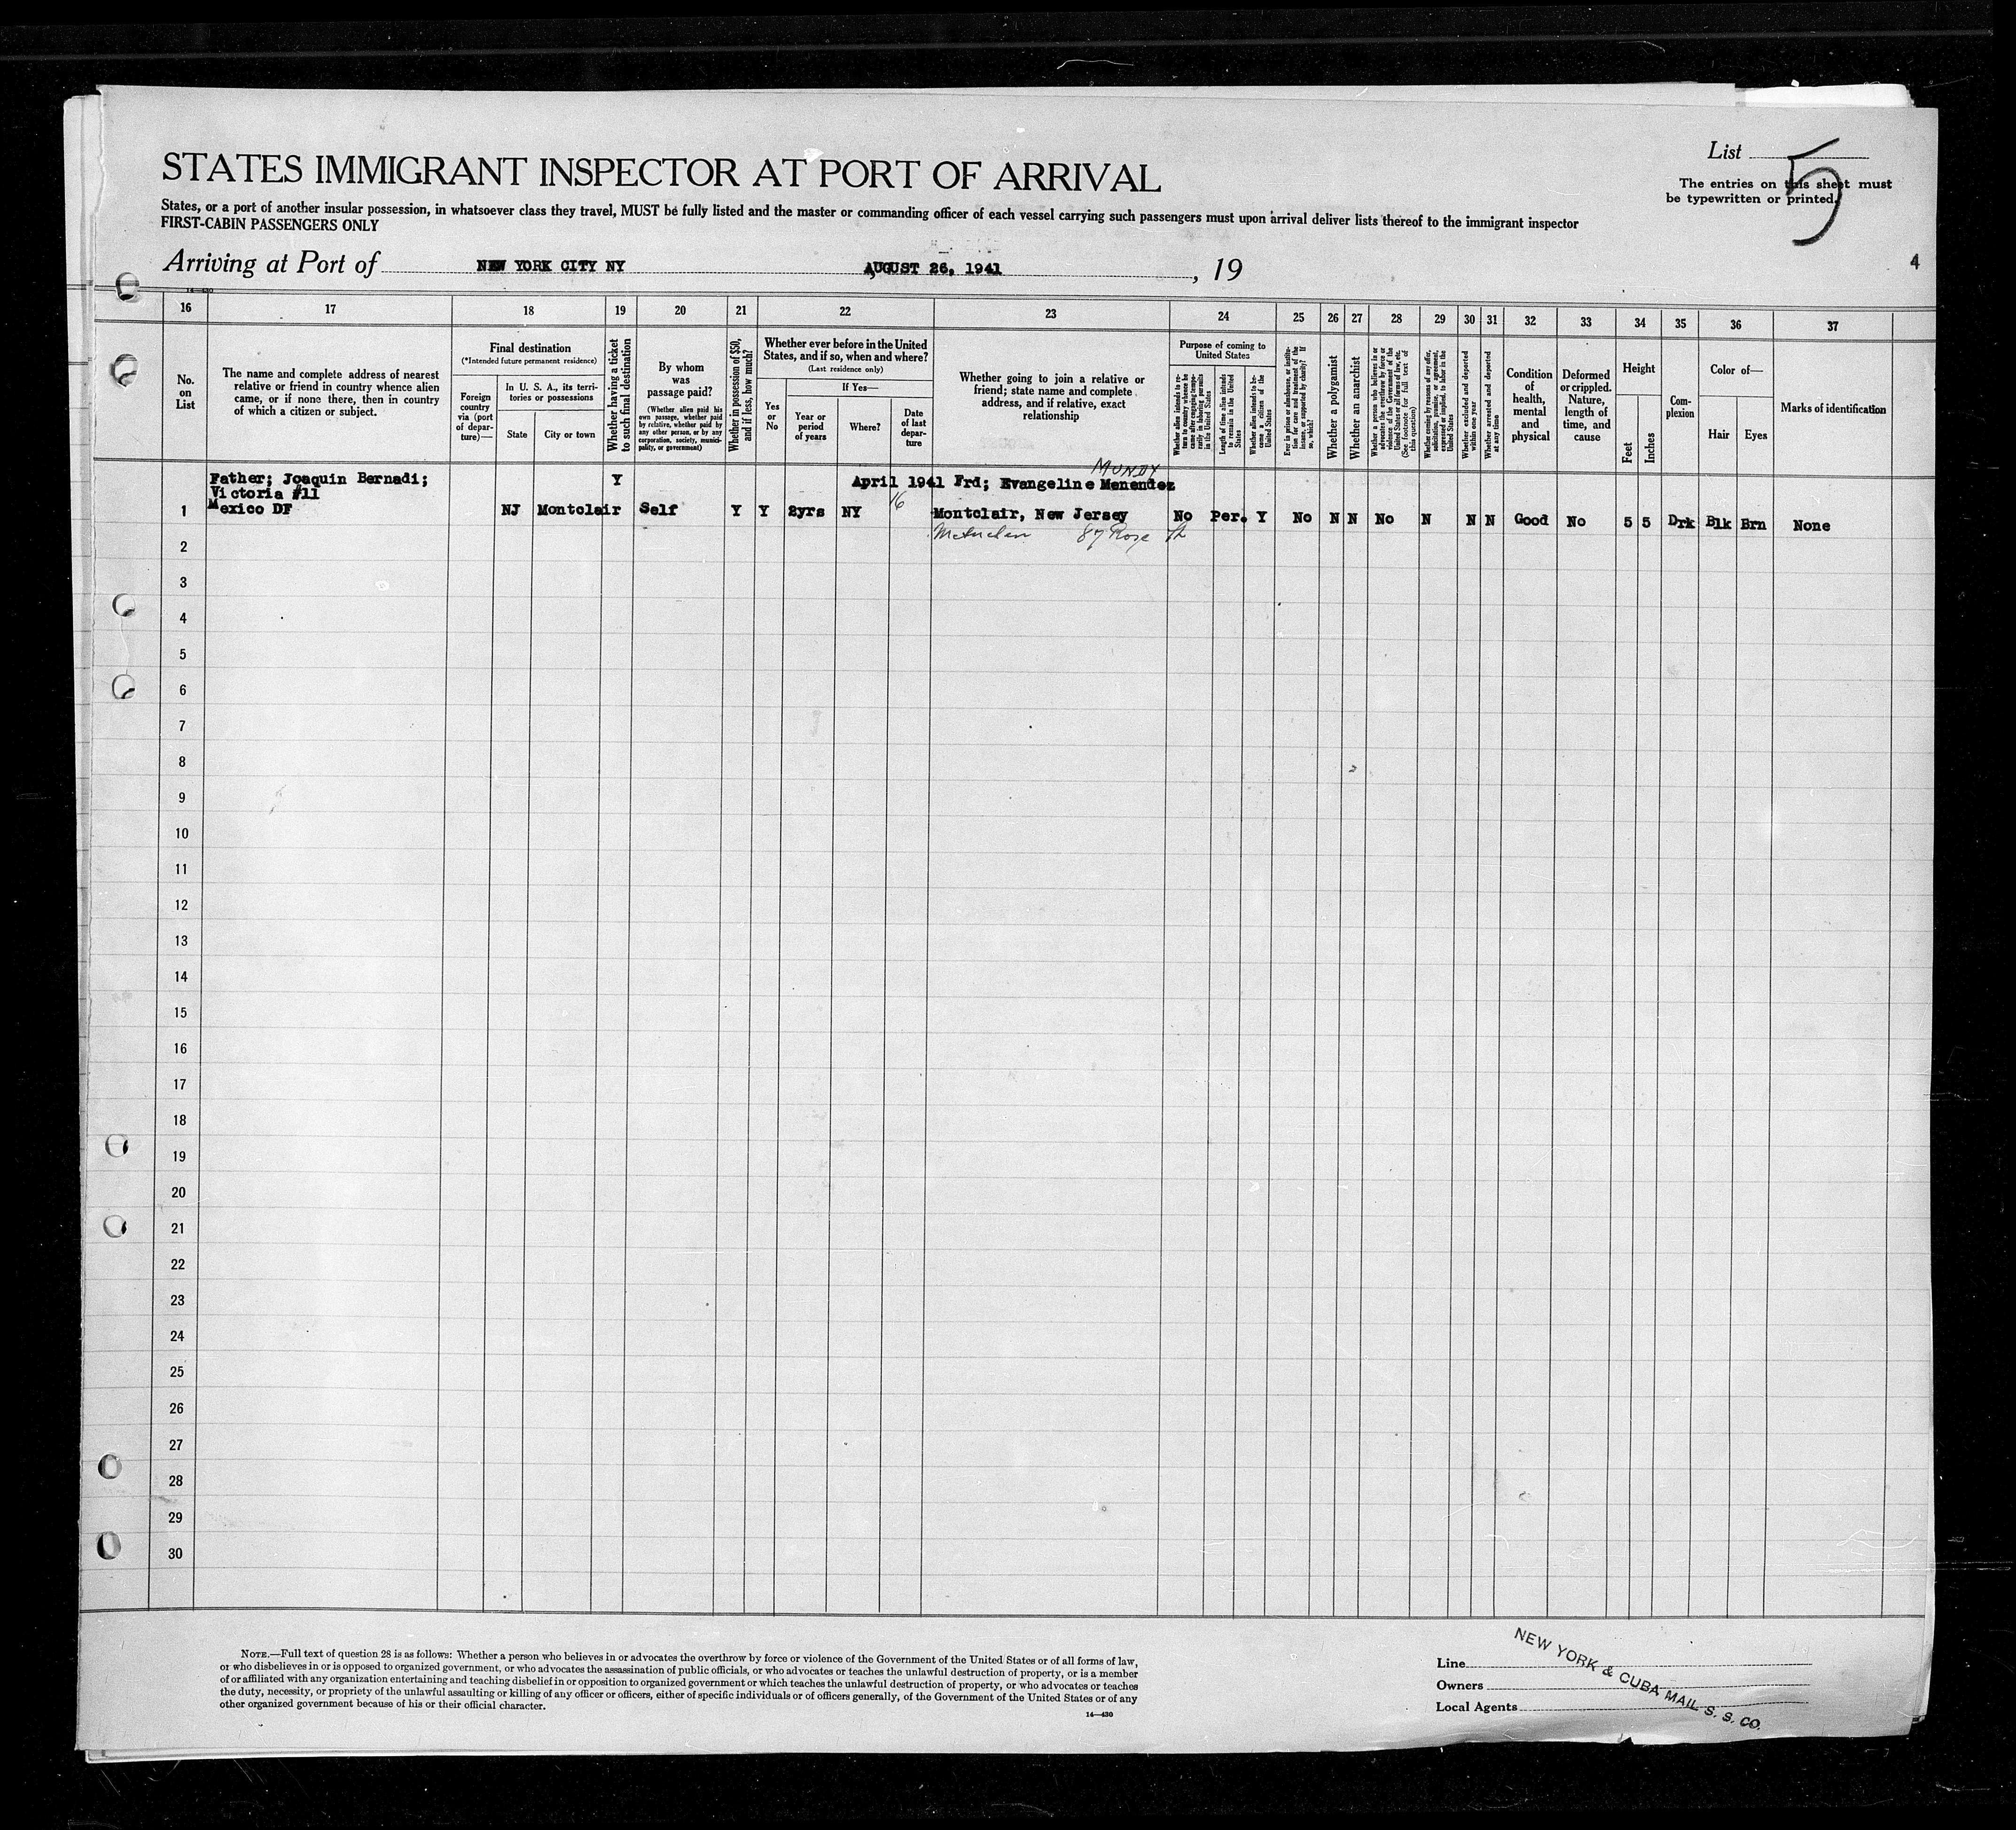 List 5
The entries on this sheet must
be typewritten or printed.
STATES IMMIGRANT INSPECTOR AT PORT OF ARRIVAL
States, or a port of another insular possession, in whatsoever class they travel, MUST be fully listed and the master or commanding officer of each vessel carrying such passengers must upon arrival deliver lists thereof to the immigrant inspector
FIRST-CABIN PASSENGERS ONLY
Arriving at Port of NEW YORK CITY NY AUGUST 26, 1941, 19
4
14—430
16 17 18 19 20 21 22 23 24 25 26 27 28 29 30 31 32 33 34 35 36 37
No.
on
List
The name and complete address of nearest
relative or friend in country whence alien
came, or if none there, then in country
of which a citizen or subject.
Final destination
(*Intended future permanent residence)
Foreign
country
via (port
of depar-
ture)—
In U. S. A., its terri-
tories or possessions
State
City or town
Whether having a ticket
to such final destination
By whom
was
passage paid?
(Whether alien paid his
own passage, whether paid
by relative, whether paid by
any other person, or by any
corporation, society, munici-
pality, or government)
Whether in possession of $50,
and if less, how much?
Whether ever before in the United
States, and if so, when and where?
(Last residence only)
Yes
or
No
If Yes—
Year or
period
of years
Where?
Date
of last
depar-
ture
Whether going to join a relative or
friend; state name and complete
address, and if relative, exact
relationship
Purpose of coming to
United States
Whether alien intends to re-
turn to country whence he
came after engaging tempo-
rarily in laboring pursuits
in the United States
Length of time alien intends
to remain in the United
States
Whether alien intends to be-
come a citizen of the
United States
Ever in prison or almshouse, or institu-
tion for care and treatment of the
insane, or supported by charity? If
so, which?
Whether a polygamist
Whether an anarchist
Whether a person who believes in or
advocates the overthrow by force or
violence of the Government of the
United States or all forms of law, etc.
(See footnote for full text of
this question)
Whether coming by reasons of any offer,
solicitation, promise, or agreement,
expressed or implied, to labor in the
United States
Whether excluded and deported
within one year
Whether arrested and deported
at any time
Condition
of
health,
mental
and
physical
Deformed
or crippled.
Nature,
length of
time, and
cause
Height
Feet
Inches
Com-
plexion
Color of—
Hair
Eyes
Marks of identification
MUNDY
Father; Joaquin Bernadi; Y April 1941 Frd; Evangeline Menendez
Victoria #11
16
1 Mexico DF NJ Montclair Self Y Y 2yrs NY Montclair, New Jersey No Per. Y No N N No N N N Good No 5 5 Drk Blk Brn None
Metuchen 87 Rose St
2
3
4
5
6
7
8
9
10
11
12
13
14
15
16
17
18
19
20
21
22
23
24
25
26
27
28
29
30
NOTE.—Full text of question 28 is as follows: Whether a person who believes in or advocates the overthrow by force or violence of the Government of the United States or of all forms of law,
or who disbelieves in or is opposed to organized government, or who advocates the assassination of public officials, or who advocates or teaches the unlawful destruction of property, or is a member
of or affiliated with any organization entertaining and teaching disbelief in or opposition to organized government or which teaches the unlawful destruction of property, or who advocates or teaches
the duty, necessity, or propriety of the unlawful assaulting or killing of any officer or officers, either of specific individuals or of officers generally, of the Government of the United States or of any
other organized government because of his or their official character.
14—430
Line
Owners
Local Agents
NEW YORK & CUBA MAIL S. S. CO.